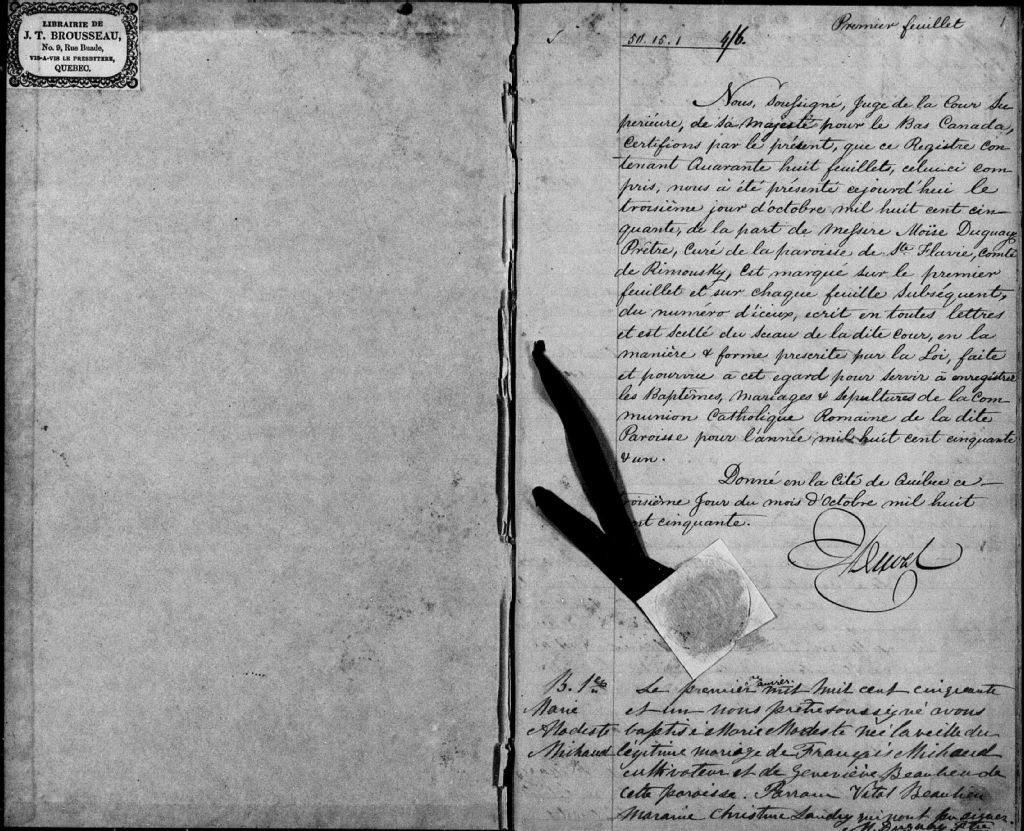 LIBRAIRIE DE
J. T. BROUSSEAU,
No. 9, Rue Buade,
VIS-A-VIS LE PRESBYTERE,
QUEBEC.
Premier feuillet
1
50. 15. 1
4/6.
Nous, Soussigné, Juge de la Cour Su
périeure, de sa majesté pour le Bas Canada,
Certifions par le présent, que ce Registre con-
tenant Quarante huit feuillets, celui-ci com
pris, nous a été présenté cejourd'hui le
troisième jour d'octobre mil huit cent cin-
quante, de la part de Messire Moïse Duguay
Prêtre, Curé de la paroisse de Ste Flavie, Comté
de Rimousky, Est marqué sur le premier
feuillet et sur chaque feuille Subséquent,
du numéro d'iceux, ecrit en toutes lettres
et est scellé du sceau de la dite Cour, en la
manière & forme prescrite par la Loi, faite
et pourvue a cet egard pour servir à enregistrer
les Baptêmes, mariages & sépultures de la Com-
munion Catholique Romaine de la dite
Paroisse pour l'année mil huit cent cinquante
& un.
Donné en la Cité de Québec ce
roisième Jour du mois d'Octobre mil huit
nt cinquante.
Duval
B. 1er
Marie
Modeste
Michaud
Le premier janvier mil huit cent cinquante
et un nous prêtre soussigné avons
baptisé Marie Modeste née la veille du
légitime mariage de François Michaud
cultivateur et de Geneviève Beaulieu de
cette paroisse. Parrain Vital Beaulieu
Maraine Christine Landry qui n'ont pu signer.
M. Duguay Ptre